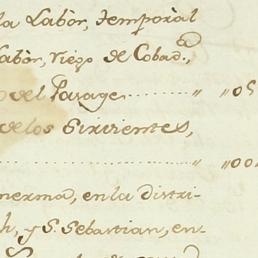 la Labòr, temporàl
Labòr, Viejo de Cobad.ª,
del Parage ........... " "05
de los Sirvientes,
........................ " "00
enerma, en la distri-
h, y S. Sebastian, en-